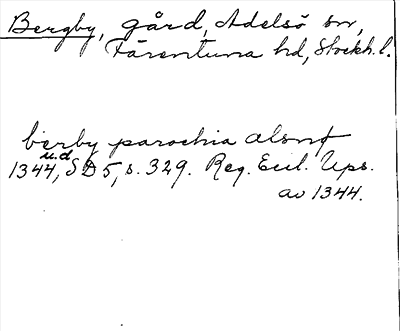 Bergby, gård, Adelsö sn,
Färentuna hd, Stockh. l.
berby parochia alsnø
u.d
1344, SD 5, s. 329. Reg. Eccl. Ups.
av 1344.